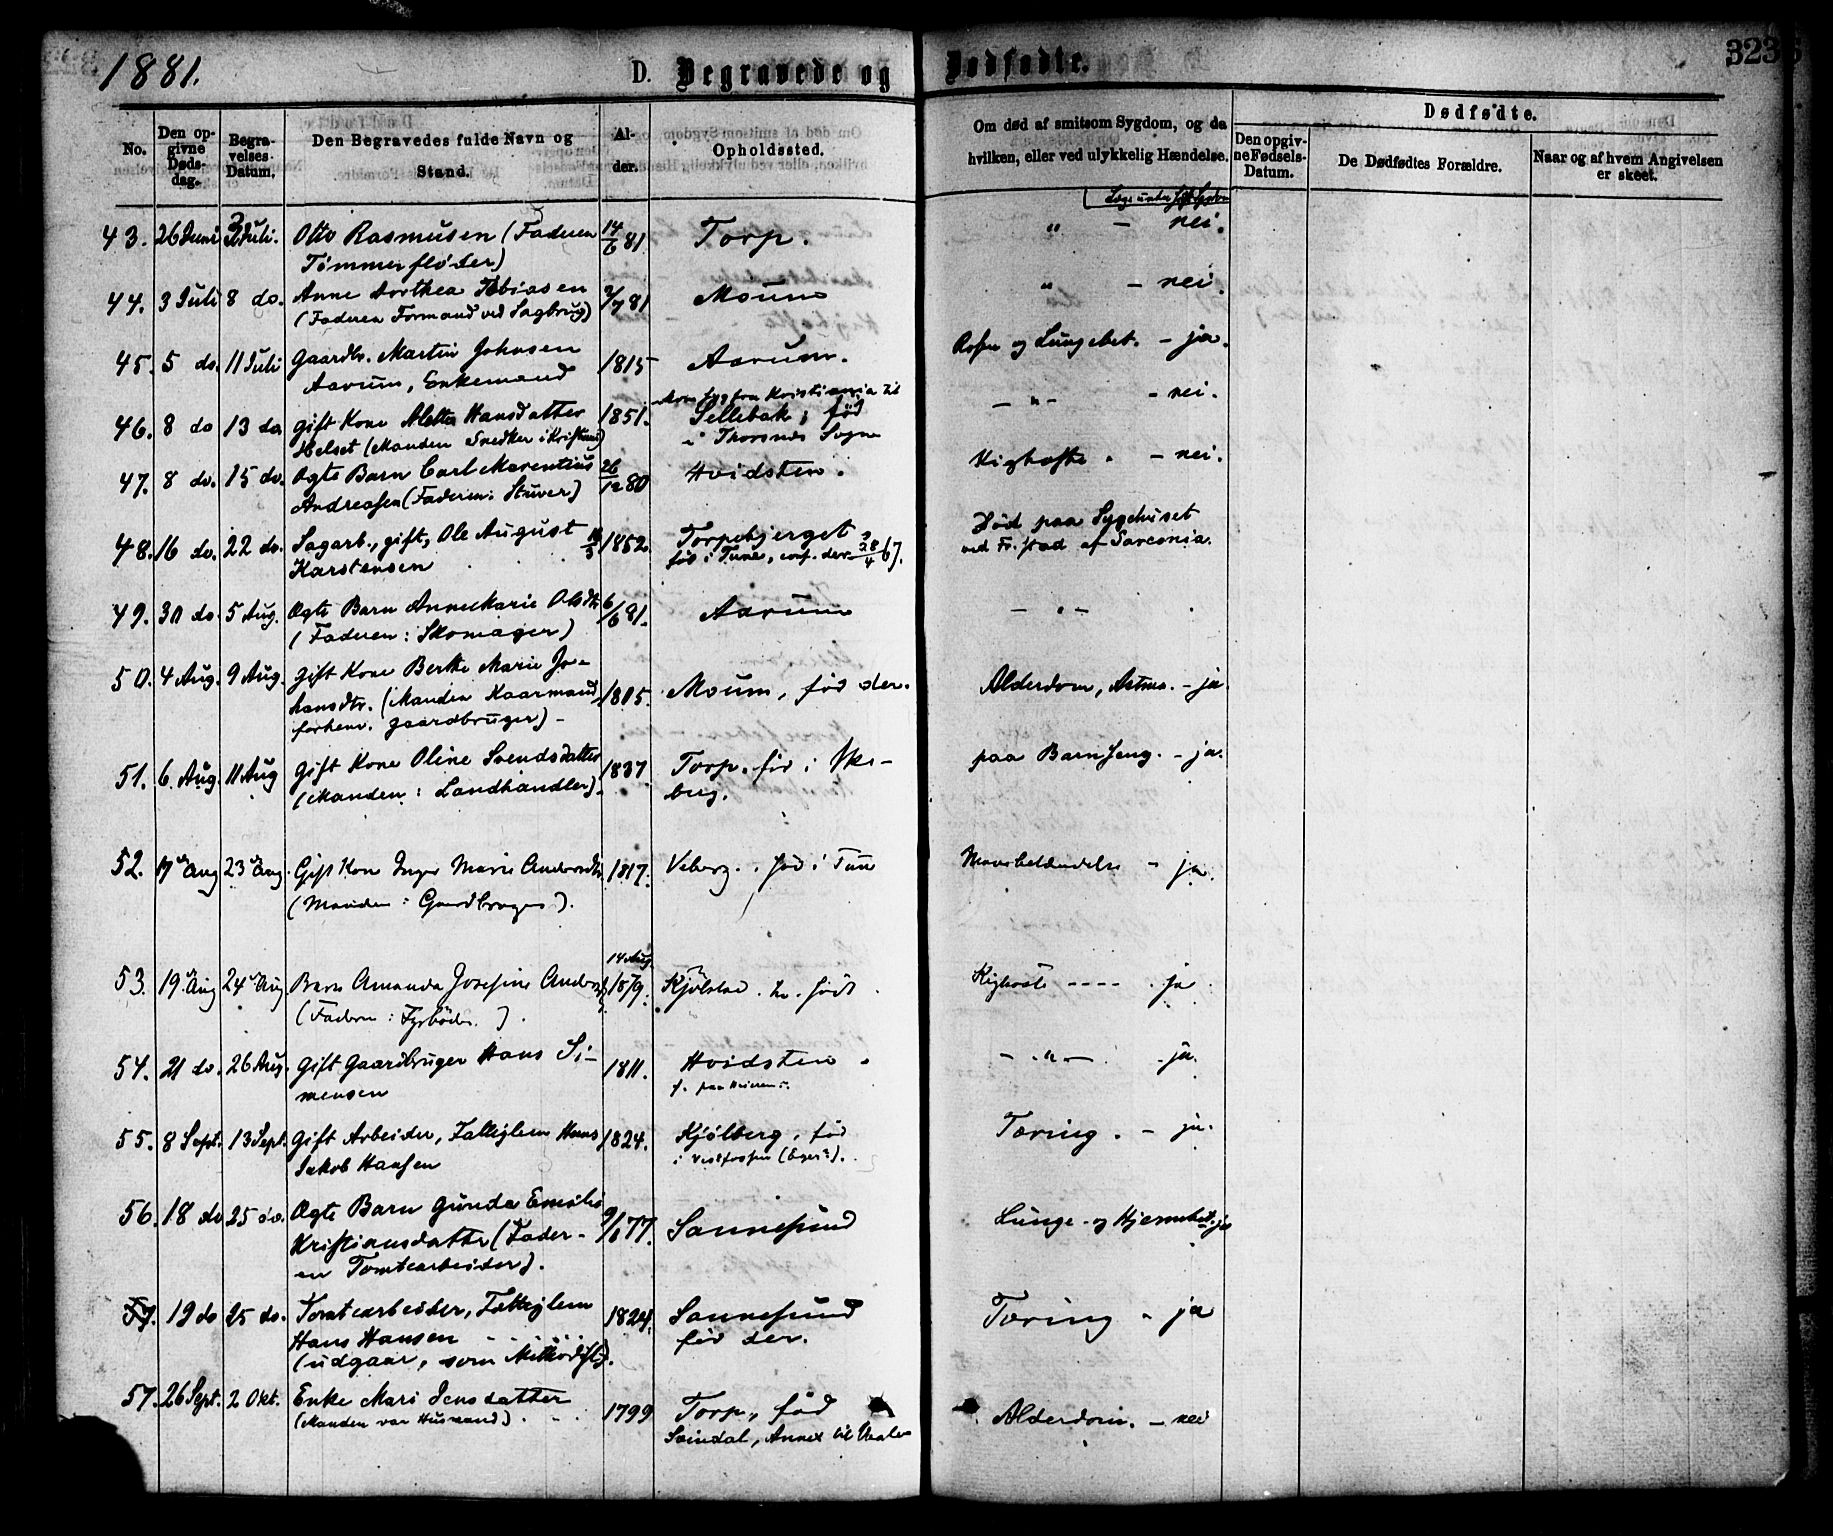 1881.
D. Begravede og Dødfødte.
323
No.
Den opgivne Dødsdag.
Begravelses-Datum.
Den Begravedes fulde Navn og Stand.
Alder.
Opholdssted.
Om død af smitsom Sygdom, og da hvilken, eller ved ulykkelig Hændelse.
Dødfødte.
Den opgivne Fødsels-Datum.
De Dødfødtes Forældre.
Naar og af hvem Angivelsen er skeet.
43. 26 Juni 3 Juli. Otto Rasmusen (Faderen 14/6 81 Torp. " - nei.
Tømmerfløder)
44. 3 Juli 8 do. Anne Dorthea Tobiasen 2/7 81 Moum " - nei.
(Faderen Formand ved Sagbrug)
45. 5 do. 11 Juli Gaardbr. Martin Johnsen 1815 Aarum. og Lungebet. - ja.
Aarum, Enkemand
syg fra Kristiania til
46. 8 do 13 do gift Kone Mette Hansdatter 1851. Sellebak; fød - " - - nei.
Helset (Manden Snedker i Kristiania) i Thorsnes Sogn
47. 8 do. 15 do. Ægte Barn Carl Marentius 26/12 80 Hvidsten. Kighoste. - nei.
Andreassen (Faderen: Stuver)
48. 16 do. 22 do. Sagarb., gift, Ole August 1852. Torpebjerget Død paa Sygehuset
Karstensen fød i Tune, conf. der 28/4 67. ved Fr.stad af Sarconia.
49. 30 do. 5 Aug. Ægte Barn Anne Marie Olsdtr 6/6 81. Aarum - " -
(Faderen: Skomager)
50. 4 Aug. 9 Aug. gift Kone Berthe Marie Jo-
hansdtr. (Manden Kaarmand, 1805. Moum, fød der. Alderdom, Astma. - ja.
forhenv. gaardbruger) -
51. 6. Aug. 11 Aug gift Kone Oline Svendsdatter 1837. Torp. fød i Ski- paa Barnseng. - ja.
(Manden: Landhandler). berg.
52. 17 Aug 23 Aug. Gift Kone Inger Marie Andersdtr 1817. Veberg. . fød i Tune - ja.
(Manden: Gaardbruger).
14 Aug.
53. 19. Aug 24 Aug. Barn Amanda Josefine 1879. Kjølstad. født. Kighoste ---- . ja
(Faderen: Fyrbøder. ).
54. 21 do. 26 Aug. Gift Gaardbruger Hans Si- 1811. Hvidsten. - . " - . ja.
mensen f. paa
55. 8 Sept. 13 Sept. Gift Arbeider, Fattiglem Hans 1824. Kjölberg, fød Tæring. - ja.
Jakob Hansen i Vestfossen (Eger?).
56. 18 do 25 do. Ægte Barn Gunda Emilie 77. Sannesund Lunge- og Hjernebet. - ja
Kristiansdatter (Fader-
en Tomtearbeider).
57. 19 do 25 do. Tomtearbeider, Fattiglem 1824. Sannesund Tæring - ja
Hans Hansen fød der.
(udgaar, som Methodist).
57. 26 Sept. 2 Okt. Enke Mari Jensdatter 1799 Torp, fød Alderdom. - nei
(Manden var Husmand). Svindal, Annex til Vaaler